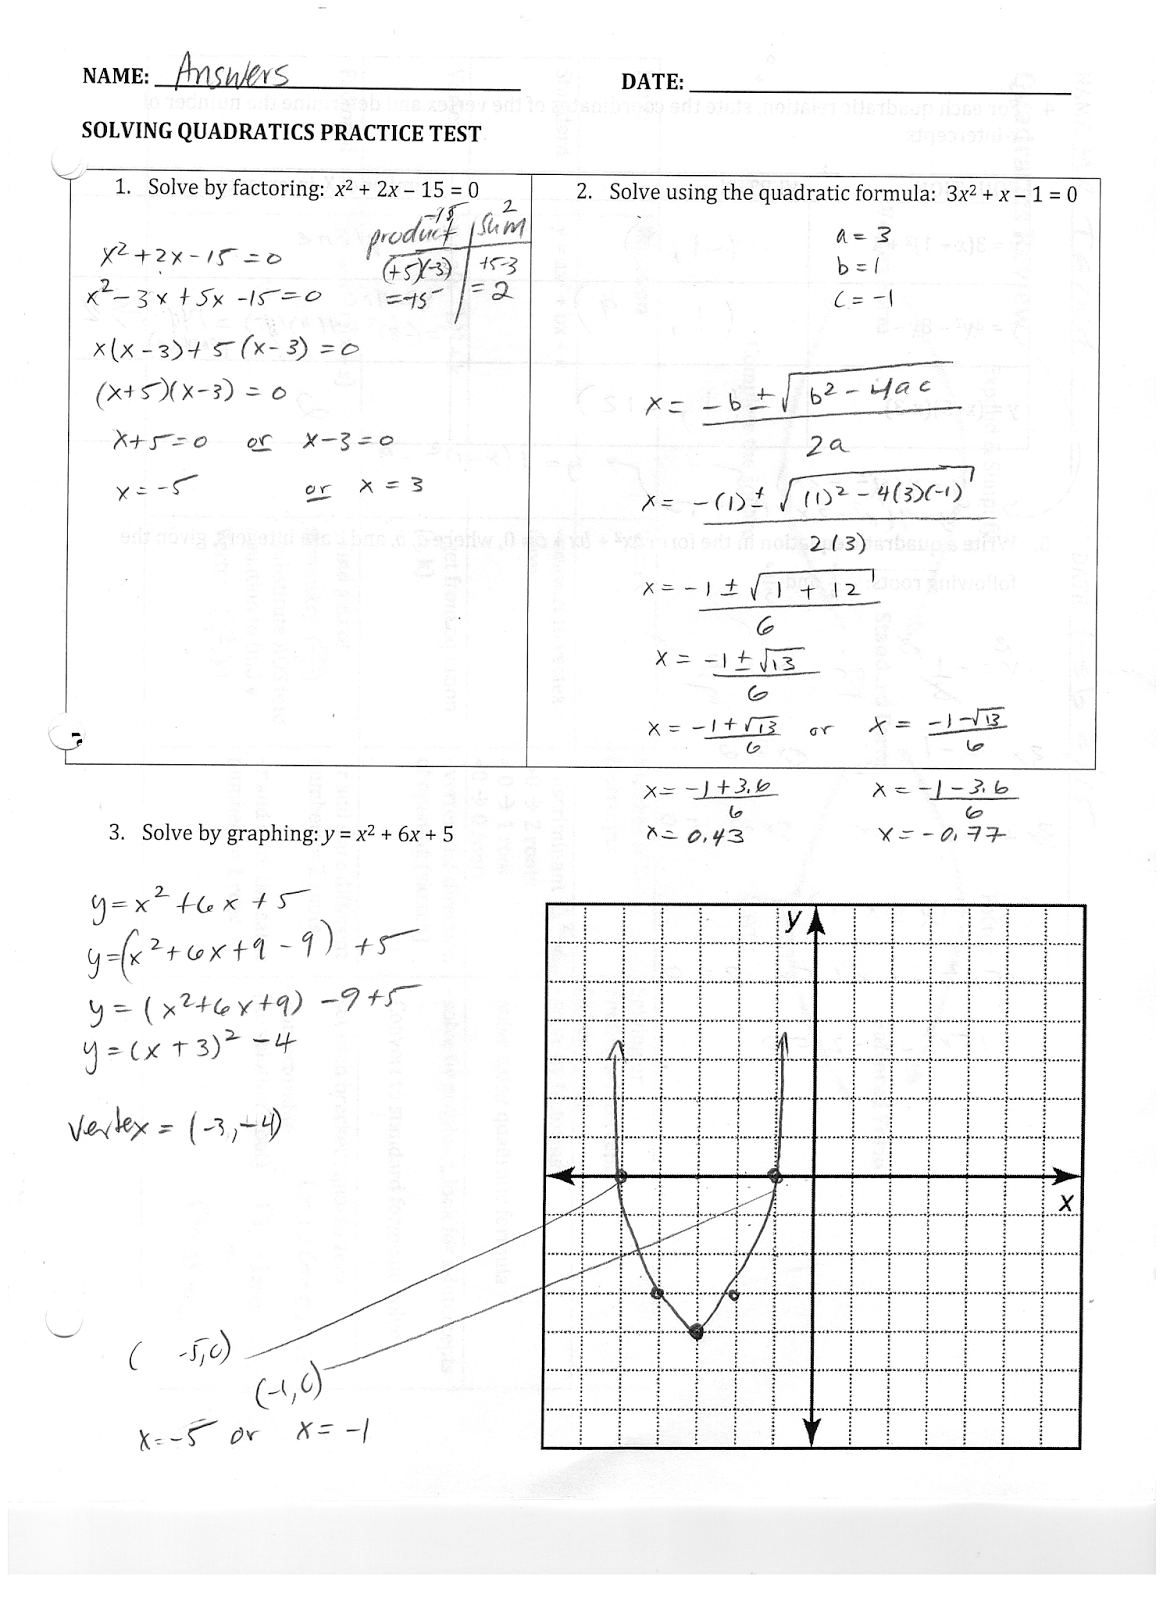 NAME: Answers
DATE:
SOLVING QUADRATICS PRACTICE TEST
1. Solve by factoring: x² + 2x – 15 = 0
product -15 | sum 2
(+5)(-3) | +5-3
= -15 | = 2
x² + 2x - 15 = 0
x² - 3x + 5x - 15 = 0
x(x - 3) + 5(x - 3) = 0
(x+5)(x-3) = 0
x+5=0 or x-3=0
x = -5 or x = 3
2. Solve using the quadratic formula: 3x² + x – 1 = 0
a = 3
b = 1
c = -1
x = -b ± √b² - 4ac
2a
x = -(1) ± √(1)² - 4(3)(-1)
2(3)
x = -1 ± √1 + 12
6
x = -1 ± √13
6
x = -1 + √13 or x = -1 - √13
6 6
x = -1 + 3.6 x = -1 - 3.6
6 6
x = 0.43 x = -0.77
3. Solve by graphing: y = x² + 6x + 5
y = x² + 6x + 5
y = (x² + 6x + 9 - 9) + 5
y = (x² + 6x + 9) - 9 + 5
y = (x + 3)² - 4
vertex = (-3, -4)
y
x
( -5, 0)
(-1, 0)
x = -5 or x = -1